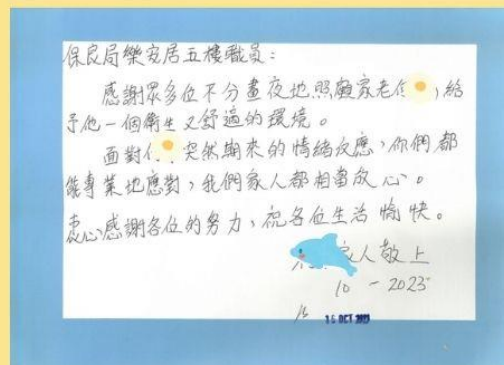 保良局樂安居五樓職員：
感謝眾多位不分晝夜地照顧家老何，給
予他一個衛生又舒適的環境。
面對突然翻來的情緒反應，你們都
能專業地應對，我們家人都相當放心。
衷心感謝各位的努力，祝各位生活愉快。
家人敬上
10 - 2023
16 OCT 2023